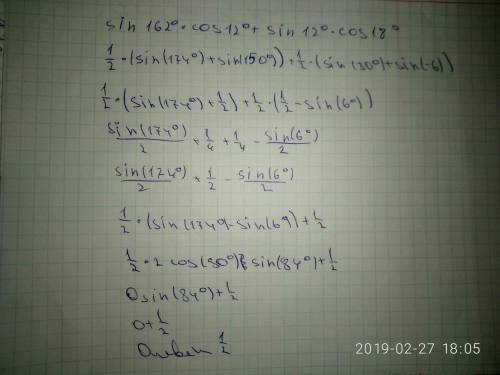 sin 162° · cos 12° + sin 12° · cos 18°
1/2 · (sin(174°) + sin(150°)) + 1/2 · (sin(30°) + sin(-6))
1/2 · (sin(174°) + 1/2) + 1/2 · (1/2 - sin(6°))
sin(174°)/2 + 1/4 + 1/4 - sin(6°)/2
sin(174°)/2 + 1/2 - sin(6°)/2
1/2 · (sin(174°) - sin(6°)) + 1/2
1/2 · 2 cos(90°) sin(84°) + 1/2
0 sin(84°) + 1/2
0 + 1/2
Ответ 1/2
2019-02-27 18:05